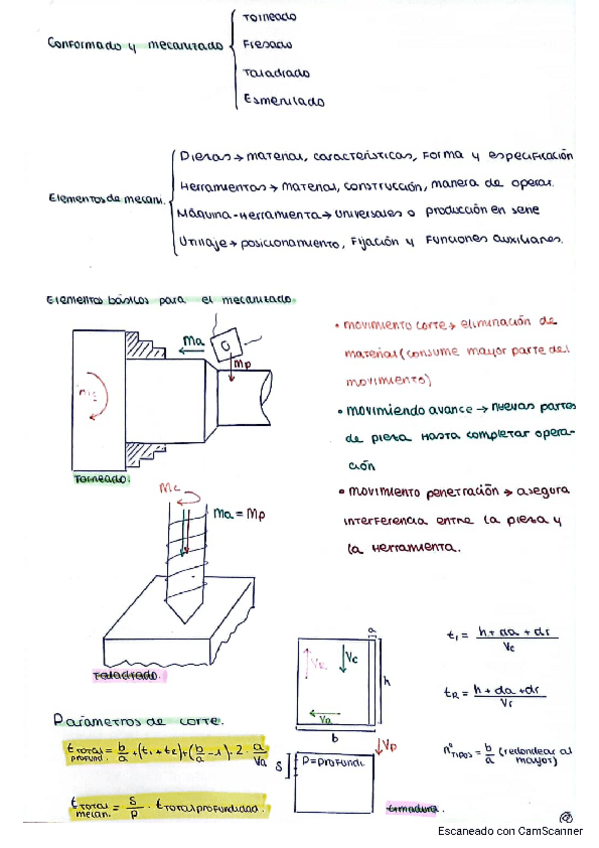 Conformado y mecanizado
Torneado
Fresado
Taladrado
Esmerilado
Elementos de mecani.
Piezas → material, características, forma y especificación
Herramientas → material, construcción, manera de operar.
Máquina-Herramienta → universales o producción en serie
Utillaje → posicionamiento, fijación y funciones auxiliares.
Elementos básicos para el mecanizado.
Ma
Mp
Mc
Torneado.
• movimiento corte → eliminación de
material (consume mayor parte del
movimiento)
• movimiendo avance → nuevas partes
de pieza hasta completar opera-
ción
• movimiento penetración → asegura
interferencia entre la pieza y
la herramienta.
Mc
Ma = Mp
Taladrado.
a
Vr
Vc
h
Va
b
t₁ = h + da + dr / Vc
tR = h + da + dr / Vr
nº TIPOS = b/a (redondear al
mayor)
Parámetros de corte.
t TOTAL profund. = b/a + (t₁ + tc) + (b/a - 1) · 2 · a/Va
t TOTAL mecan. = S/P · t TOTAL profundidad.
Vp
S
P = profundi.
Limadura.
Escaneado con CamScanner